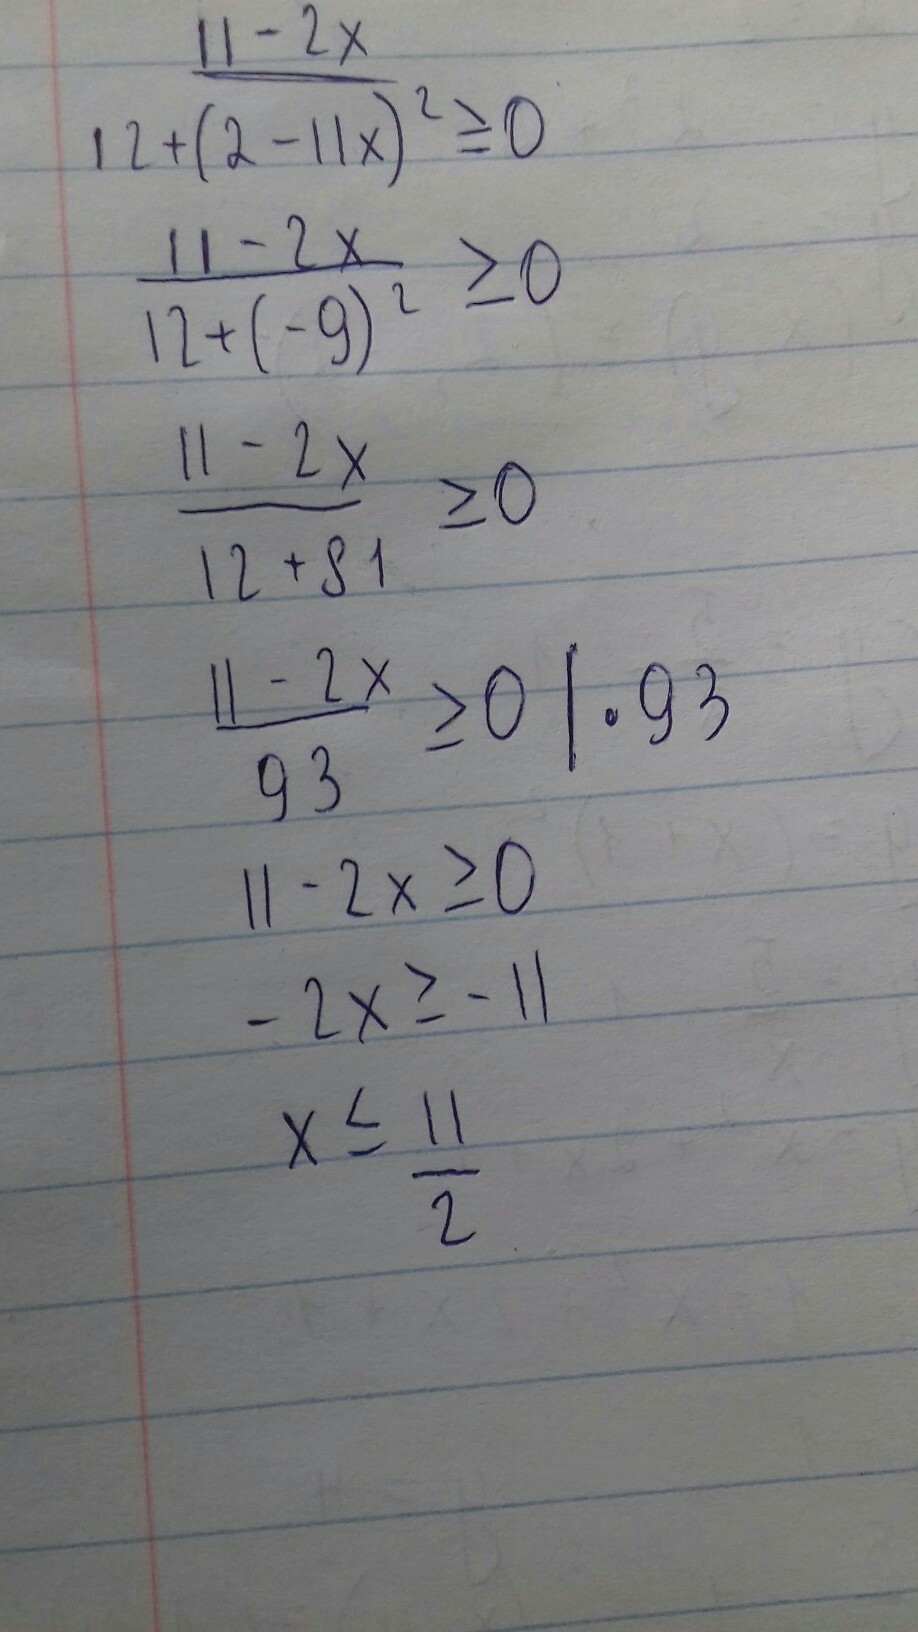 11 - 2x
12+(2-11x)² ≥0
11 - 2x
12+(-9)² ≥0
11 - 2x
12+81 ≥0
11 - 2x
93 ≥0 |·93
11 - 2x ≥0
-2x ≥ -11
x ≤ 11
2